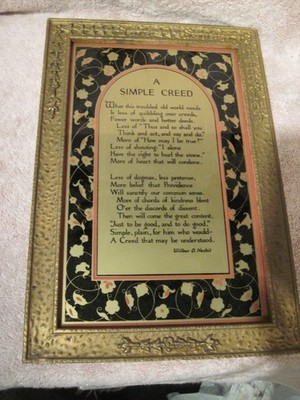 A
SIMPLE CREED
What this troubled old world needs
Is less of quibbling over creeds,
Fewer words and better deeds.
Less of "Thus and so shall you
Think and act, and say and do."
More of "How may I be true?"
Less of shouting: "I alone
Have the right to hurl the stone."
More of heart that will condone.
Less of dogmas, less pretense,
More belief that Providence
Will sanctify our common sense.
More of chords of kindness blent
O'er the discords of dissent.
Then will come the great content.
"Just to be good, and to do good."
Simple, plain, for him who would—
A Creed that may be understood.
Wilbur D. Nesbit